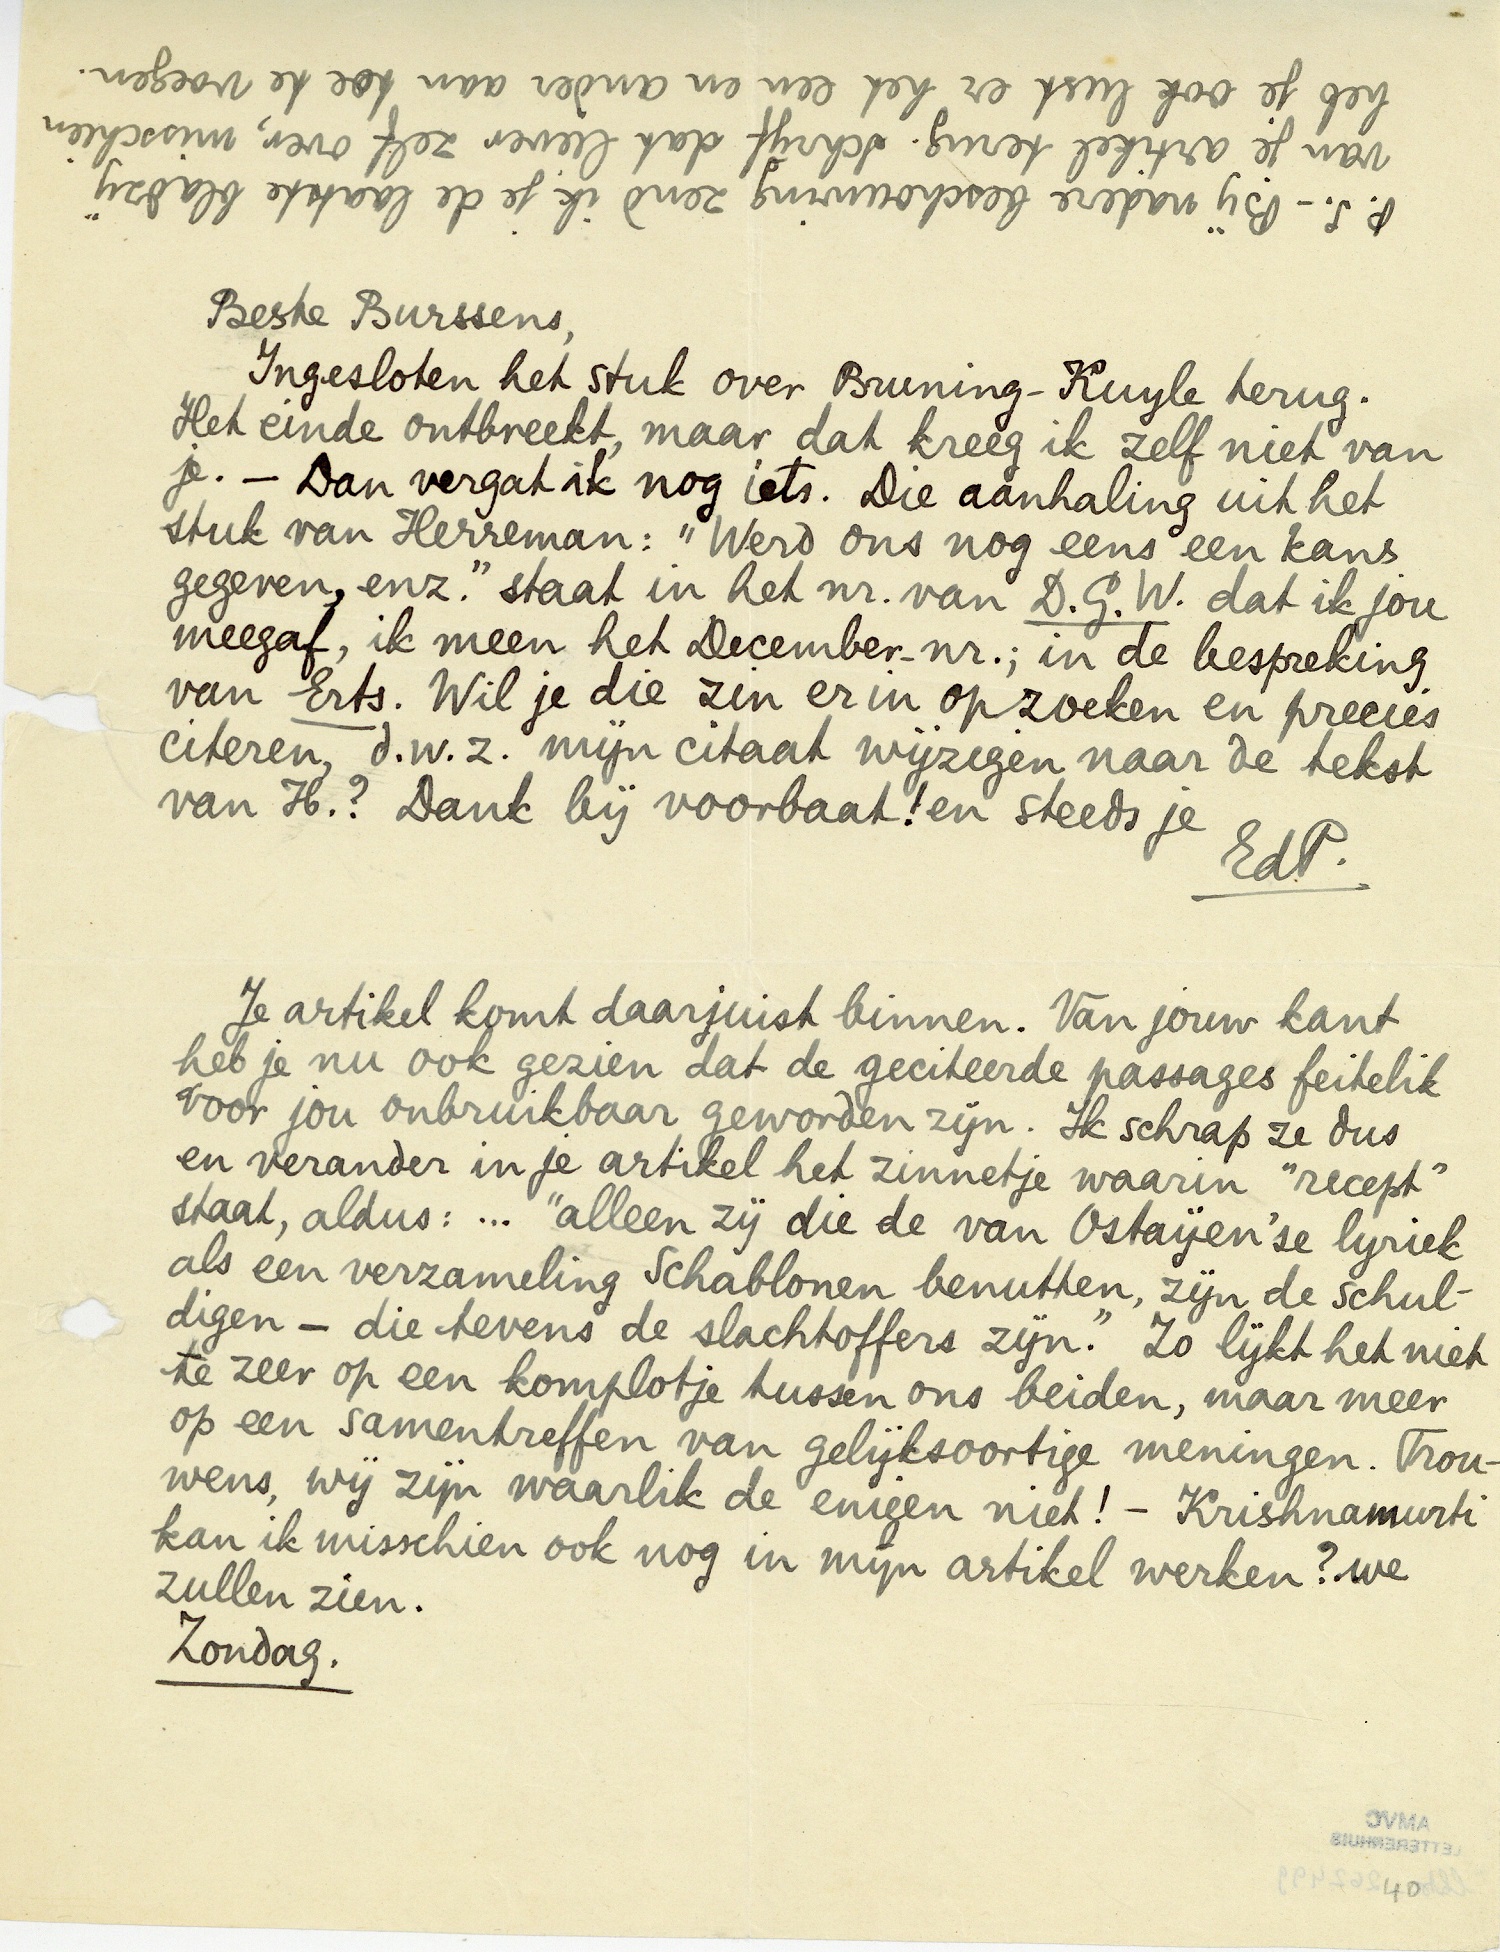 P.S.- Bij nadere beschouwing zend ik je de laatste bladzij
van je artikel terug. Schrijf dat liever zelf over, misschien
heb je ook lust er het een en ander aan toe te voegen.
Beste Burssens,
Ingesloten het stuk over Bruning-Kuyle terug.
Het einde ontbreekt, maar dat kreeg ik zelf niet van
je. — Dan vergat ik nog iets. Die aanhaling uit het
stuk van Herreman: "Werd ons nog eens een kans
gegeven, enz." staat in het nr. van D.G.W. dat ik jou
meegaf, ik meen het December-nr.; in de bespreking
van Erts. Wil je die zin erin opzoeken en precies
citeren, d.w.z. mijn citaat wijzigen naar de tekst
van H.? Dank bij voorbaat! en steeds je
EdP.
Je artikel komt daarjuist binnen. Van jouw kant
heb je nu ook gezien dat de geciteerde passages feitelik
voor jou onbruikbaar geworden zijn. Ik schrap ze dus
en verander in je artikel het zinnetje waarin "recept"
staat, aldus: ... "alleen zij die de van Ostaijen'se lyriek
als een verzameling schablonen benutten, zijn de schul-
digen — die tevens de slachtoffers zijn." Zo lijkt het niet
te zeer op een komplotje tussen ons beiden, maar meer
op een samentreffen van gelijksoortige meningen. Trou-
wens, wij zijn waarlik de enigen niet! — Krishnamurti
kan ik misschien ook nog in mijn artikel werken? we
zullen zien.
Zondag.
AMVC
LETTERENHUIS
40